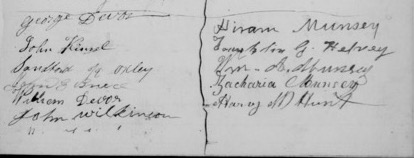 George Devor
John Kinsel
Sanford Oxley
William Devor
John Wilkinson
Hiram Munsey
G. Helvey
Wm. Munsey
Zacharia Munsey
Harvy M Hunt